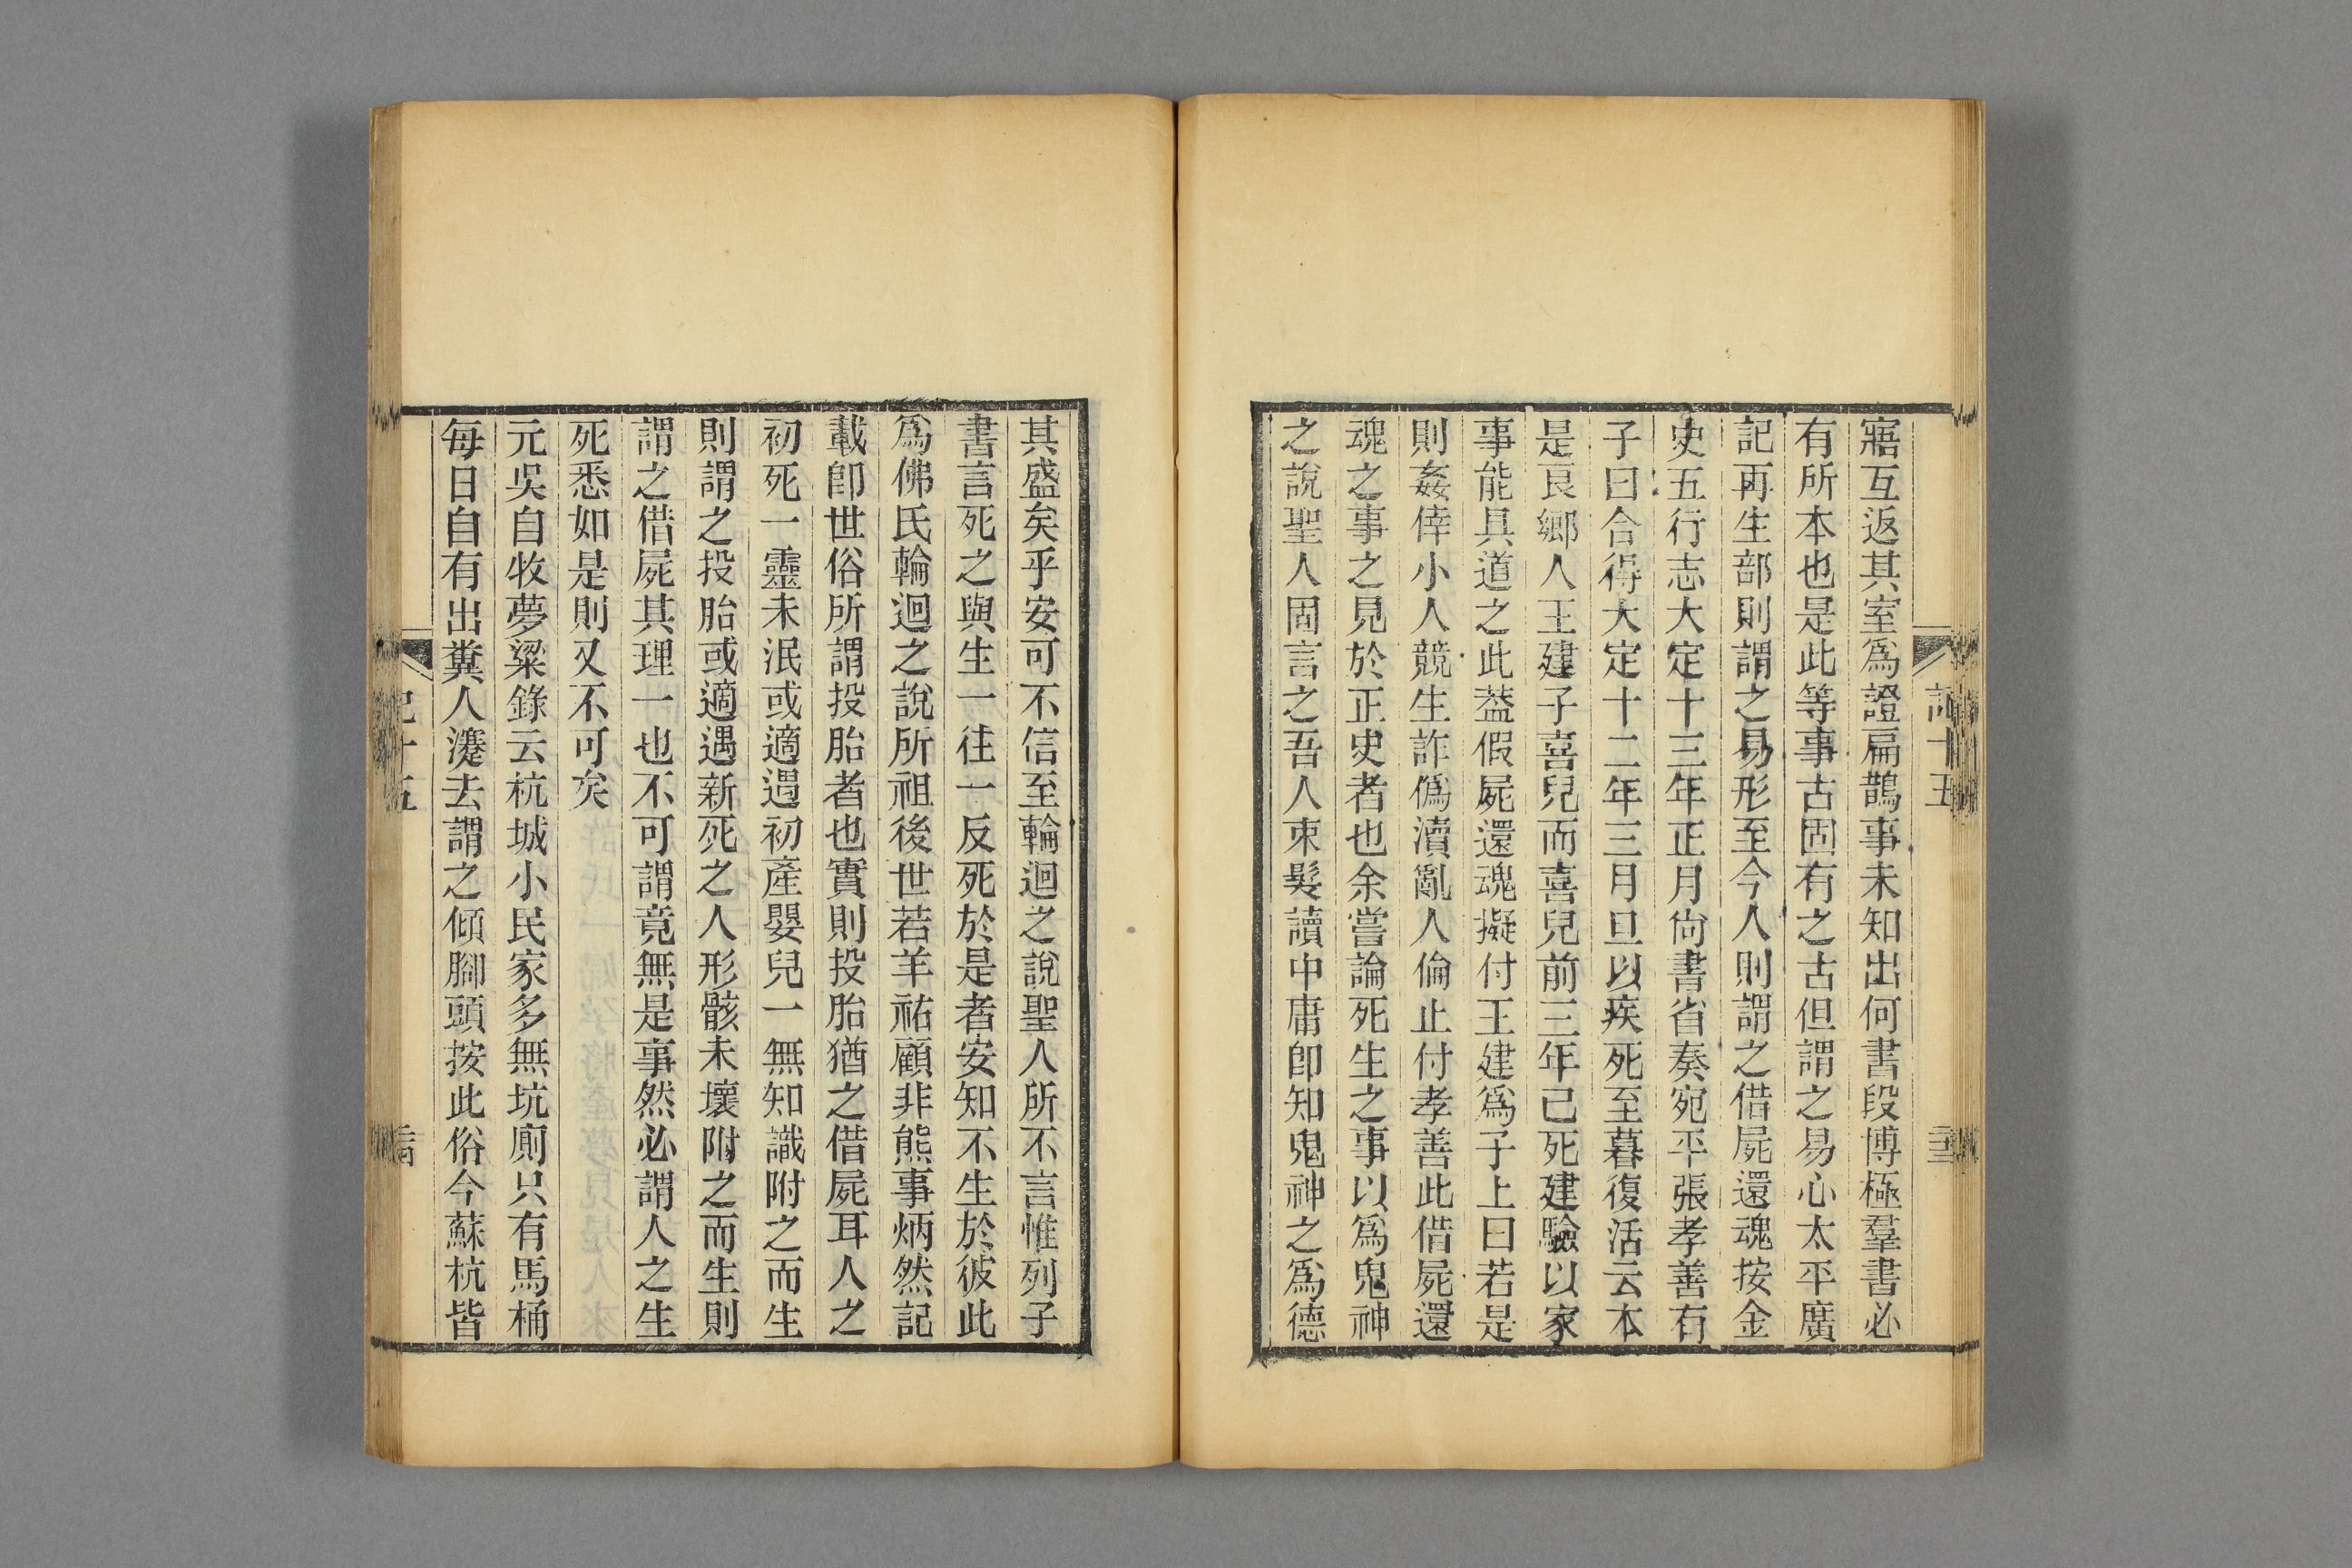 寤互返其室爲證扁鵲事未知出何書段博極羣書必
有所本也是此等事古固有之古但謂之易心太平廣
記再生部則謂之易形至今人則謂之借屍還魂按金
史五行志大定十三年正月尙書省奏宛平張孝善有
子曰合得大定十二年三月旦以疾死至暮復活云本
是良鄉人王建子喜兒而喜兒前三年已死建驗以家
事能具道之此葢假屍還魂擬付王建爲子上曰若是
則姦倖小人競生詐僞瀆亂人倫止付孝善此借屍還
魂之事之見於正史者也余嘗論死生之事以爲鬼神
之說聖人固言之吾人束髮讀中庸卽知鬼神之爲德
其盛矣乎安可不信至輪迴之說聖人所不言惟列子
書言死之與生一往一反死於是者安知不生於彼此
爲佛氏輪迴之說所祖後世若羊祐顧非熊事炳然記
載卽世俗所謂投胎者也實則投胎猶之借屍耳人之
初死一靈未泯或適遇初產嬰兒一無知識附之而生
則謂之投胎或適遇新死之人形骸未壞附之而生則
謂之借屍其理一也不可謂竟無是事然必謂人之生
死悉如是則又不可矣
元吳自牧夢粱錄云杭城小民家多無坑廁只有馬桶
每日自有出糞人瀽去謂之傾腳頭按此俗今蘇杭皆